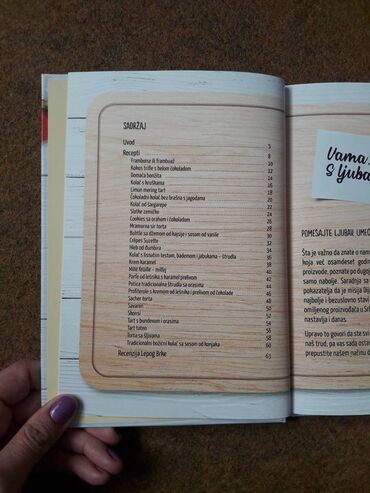 SADRŽAJ
Uvod 5
Recepti 8
Framboise ili frambuaž 10
Kokos trifle s belom čokoladom 12
Domaća bonžita 14
Kolač s kruškama 16
Limun mering tart 18
Čokoladni kolač bez brašna s jagodama 20
Kolač od šargarepe 22
Slatke zemičke 24
Cookies sa orahom i čokoladom 26
Mramorna sir torta 28
Buhtle sa džemom od kajsije i sosom od vanile 30
Crêpes Suzette 32
Hleb od đumbira 34
Kolač s lisnatim testom, bademom i jabukama – štrudla 36
Krem karamel 38
Mille feuille – milfej 40
Parfe od lešnika s karamel prelivom 42
Potica tradicionalna štrudla sa orasima 44
Profiterole s kremom od lešnika i prelivom od čokolade 46
Sacher torta 48
Savareni 50
Skonsi 52
Tart s bundevom i orasima 54
Tart taten 56
Torta sa šljivama 58
Tradicionalni božićni kolač sa sosom od konjaka 60
Recenzija Lepog Brke 63
Vama,
S ljuba
POMEŠAJTE LJUBAV, UMEĆ
Šta je važno da znate o nano
koja već osamdeset godi
proizvode, poznate po dugogo
samo najbolje. Saradnja sa
pokazatelja da je misija
najbolje i bezuslovno stavi
omiljenog proizvođača u Srb
nastavlja i danas.
Upravo to govori da ste svi
naš trud, pa vas sada ostav
prepustite našem načinu d